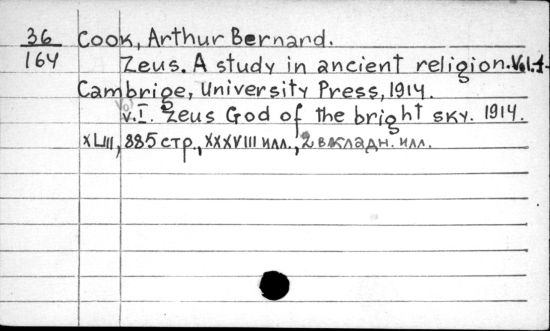 36 Cook, Arthur Bernard.
164 Zeus. A study in ancient religion. Vol. 1-
Cambrige, University Press, 1914.
Vol
v. I. Zeus God of the bright sky. 1914.
XLIII, 885 стр., XXXVIII илл., 2 вкладн. илл.